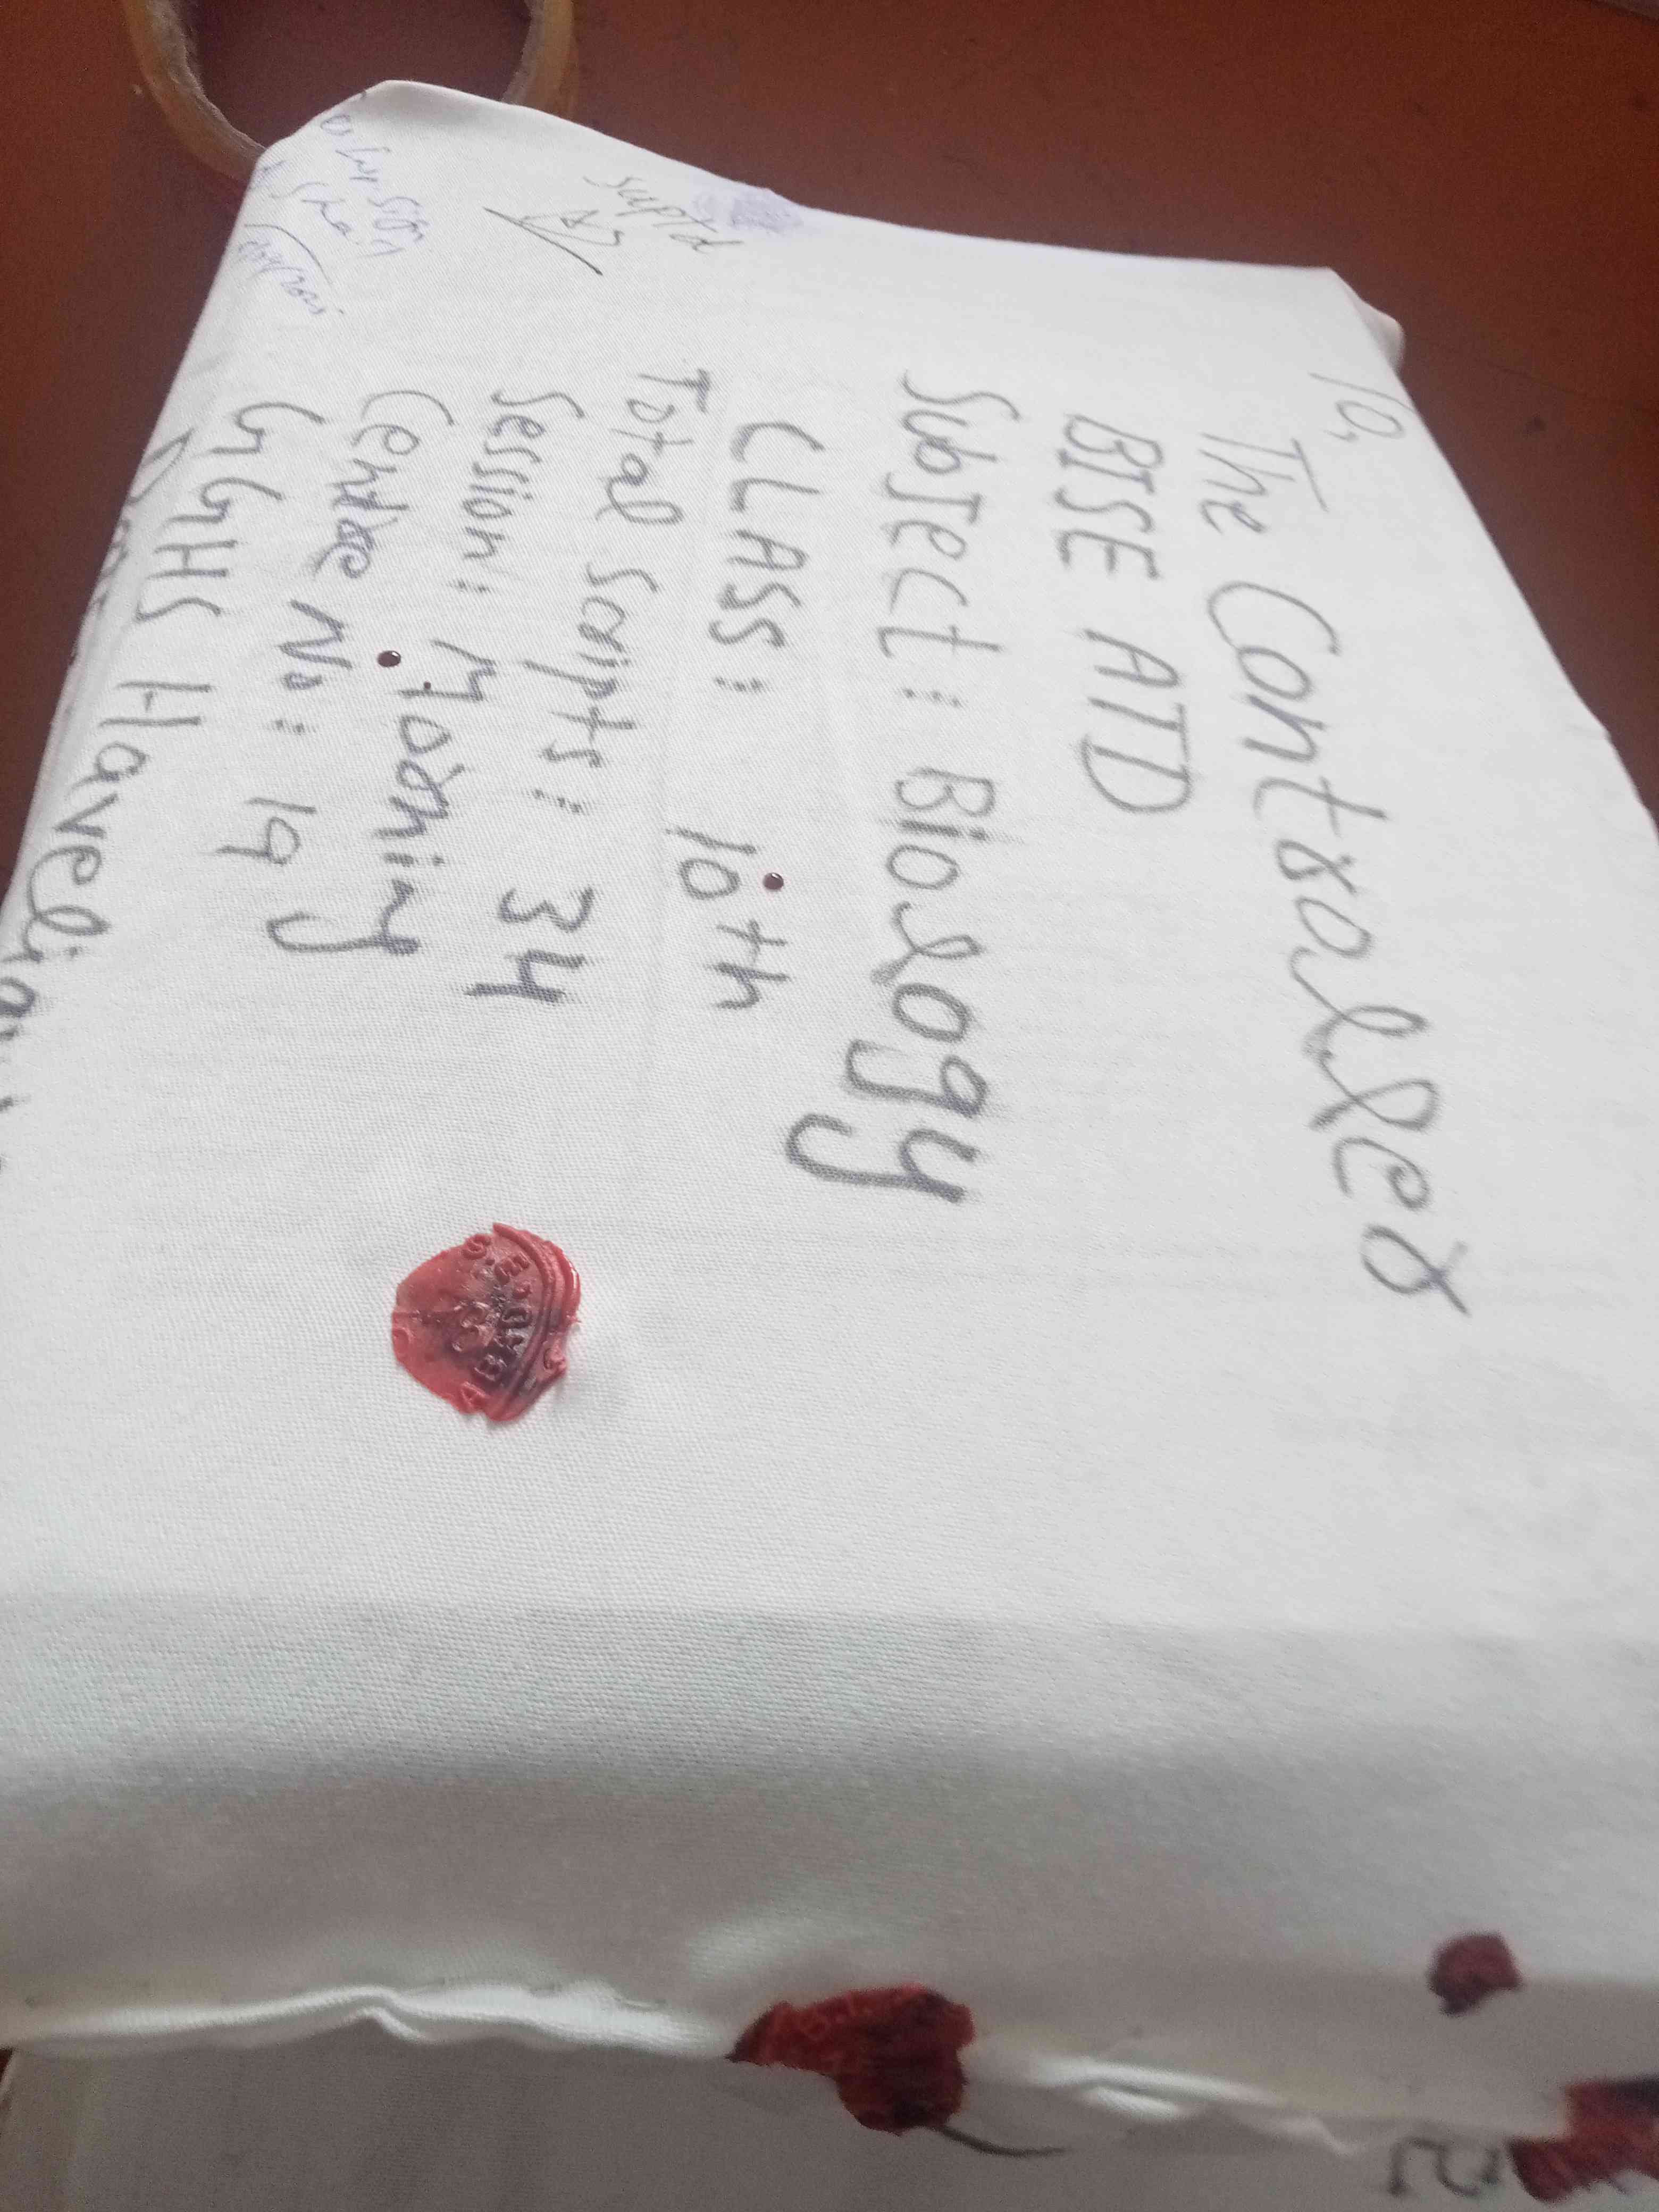 To,
The Controller
BISE ATD
Subject: Biology
CLASS: 10th
Total Scripts: 34
Session: Morning
Centre No: 19
GGHS Havelian
Suptd